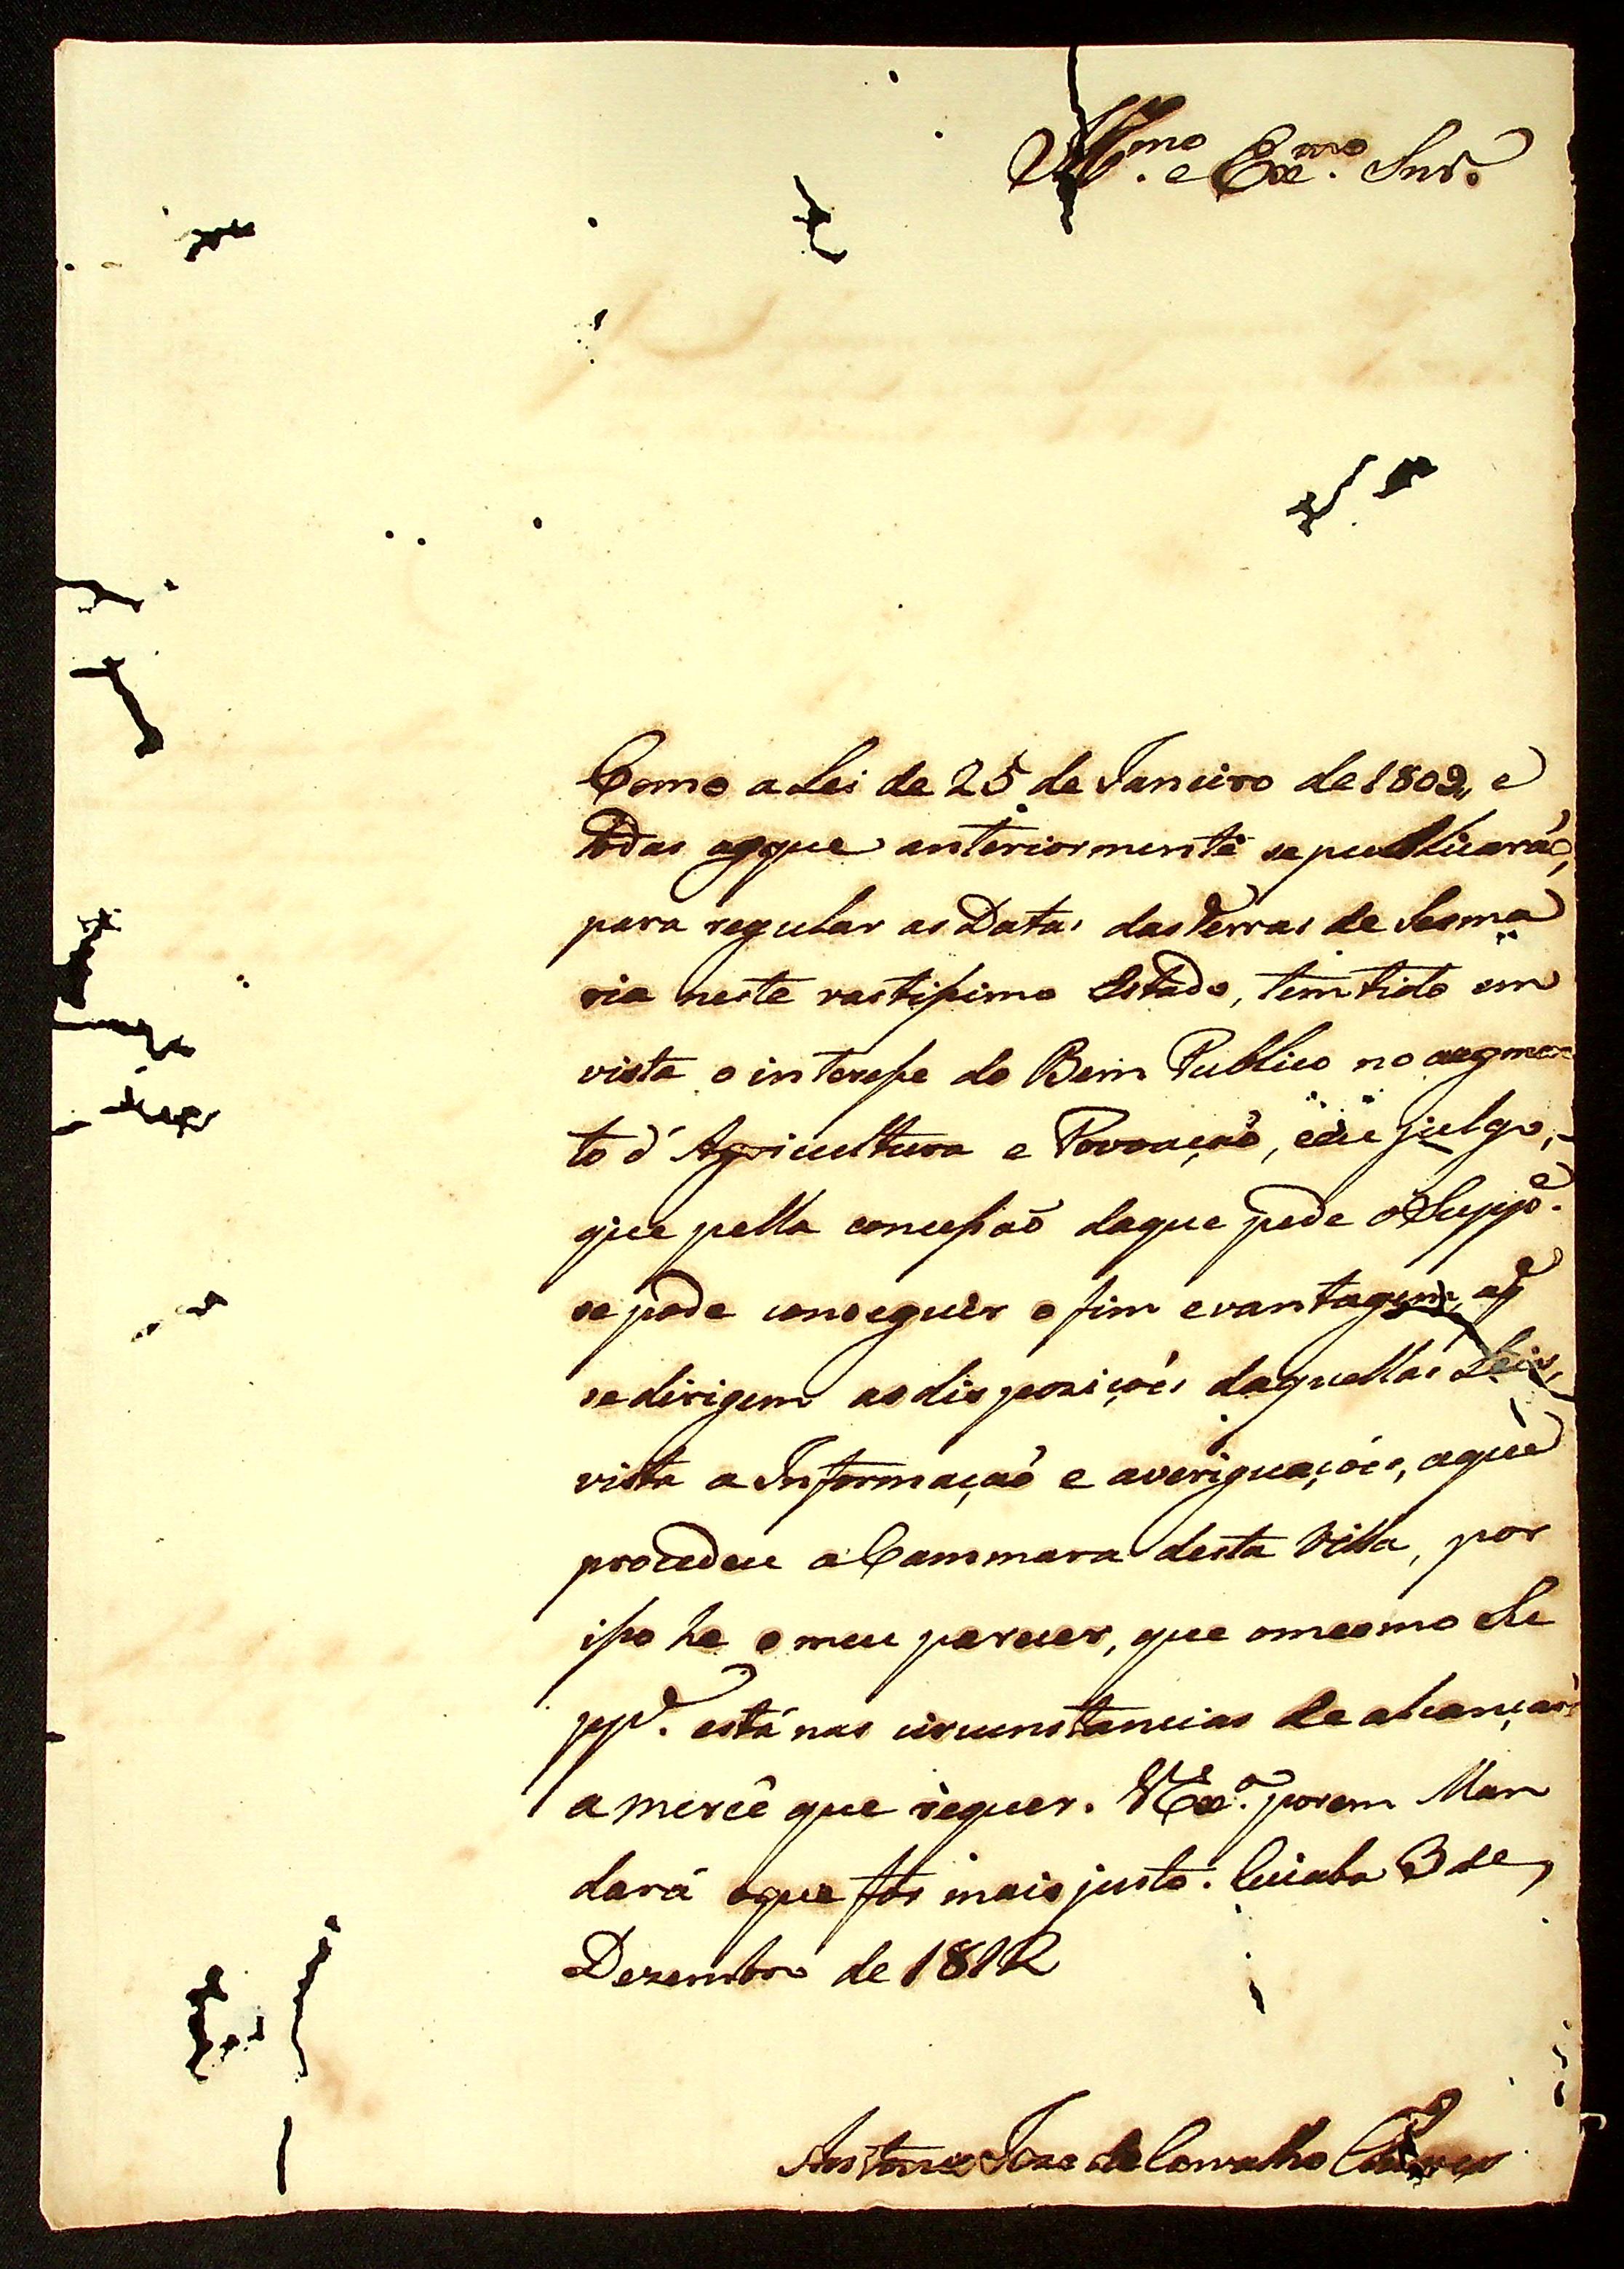 Ill.mo e Ex.mo Snr.
Como a Lei de 25 de Janeiro de 1809, e
todas as que anteriormente se publicarão,
para regular as Datas das terras de Sesma
ria neste vastissimo Estado, tem tido em
vista o interesse do Bem Publico no augmen
to d'Agricultura e Povoação, e eu julgo,
que pella concessão da que pede o Supp.e
se pode conseguir o fim e vantagem, a q̃
se dirigem as dispozições daquellas Leis,
vista a Informação e averiguações, a que
procedeu a Cammara desta Villa, por
isso he o meu parecer, que o mesmo Su
pp.e está nas circunstancias de alcançar
a mercê que requer. V Ex.a porem Man
dará o que for mais justo. Cuiaba 3 de
Dezembro de 1812
Antonio Joze de Carvalho Chaves